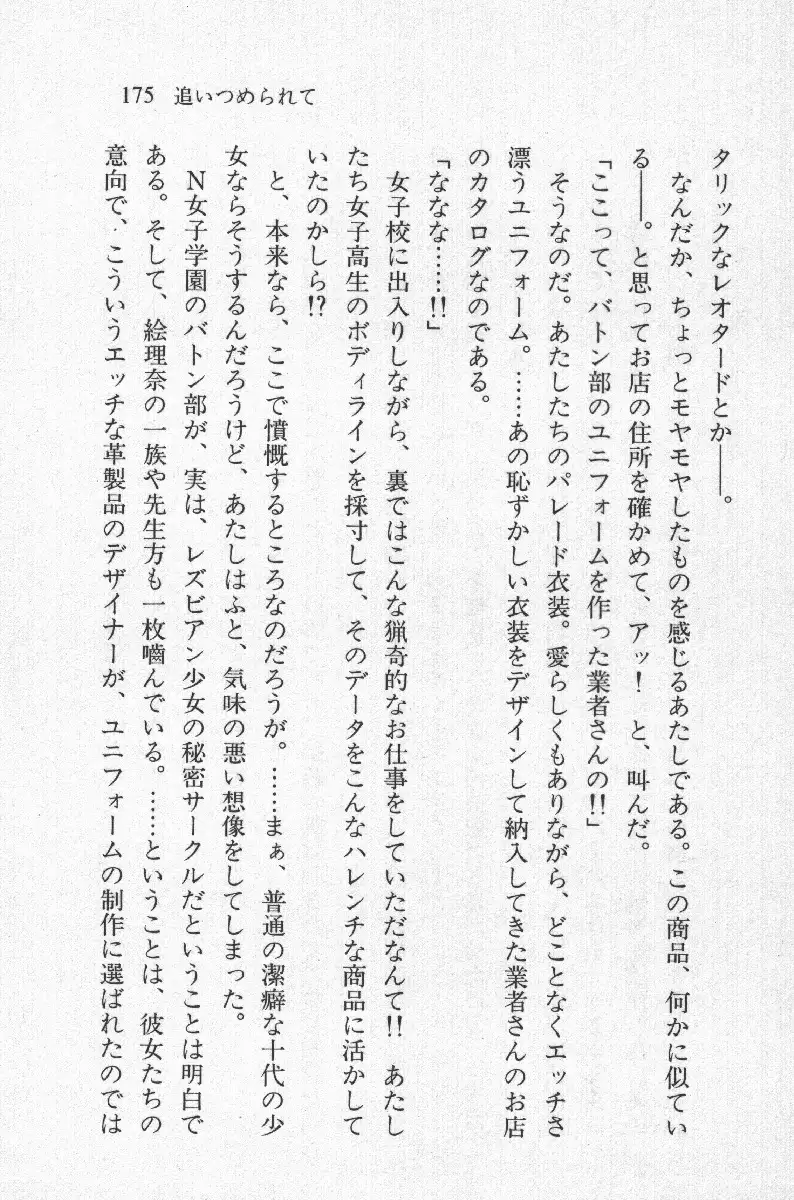 175 追いつめられて
タリックなレオタードとか――。
なんだか、ちょっとモヤモヤしたものを感じるあたしである。この商品、何かに似てい
る――。と思ってお店の住所を確かめて、アッ！ と、叫んだ。
「ここって、バトン部のユニフォームを作った業者さんの!!」
そうなのだ。あたしたちのパレード衣装。愛らしくもありながら、どことなくエッチさ
漂うユニフォーム。……あの恥ずかしい衣装をデザインして納入してきた業者さんのお店
のカタログなのである。
「ななな……!!」
女子校に出入りしながら、裏ではこんな猟奇的なお仕事をしていただなんて!! あたし
たち女子高生のボディラインを採寸して、そのデータをこんなハレンチな商品に活かして
いたのかしら!?
と、本来なら、ここで憤慨するところなのだろうが。……まぁ、普通の潔癖な十代の少
女ならそうするんだろうけど、あたしはふと、気味の悪い想像をしてしまった。
Ｎ女子学園のバトン部が、実は、レズビアン少女の秘密サークルだということは明白で
ある。そして、絵理奈の一族や先生方も一枚嚙んでいる。……ということは、彼女たちの
意向で、こういうエッチな革製品のデザイナーが、ユニフォームの制作に選ばれたのでは